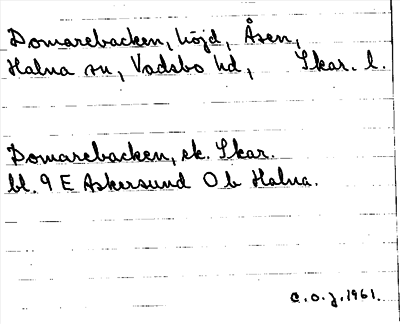 Domarebacken, höjd, Åsen,
Halna sn, Vadsbo hd, Skar. l.
Domarebacken, ek. Skar.
bl. 9 E Askersund O b Halna.
C.O.J. 1961.